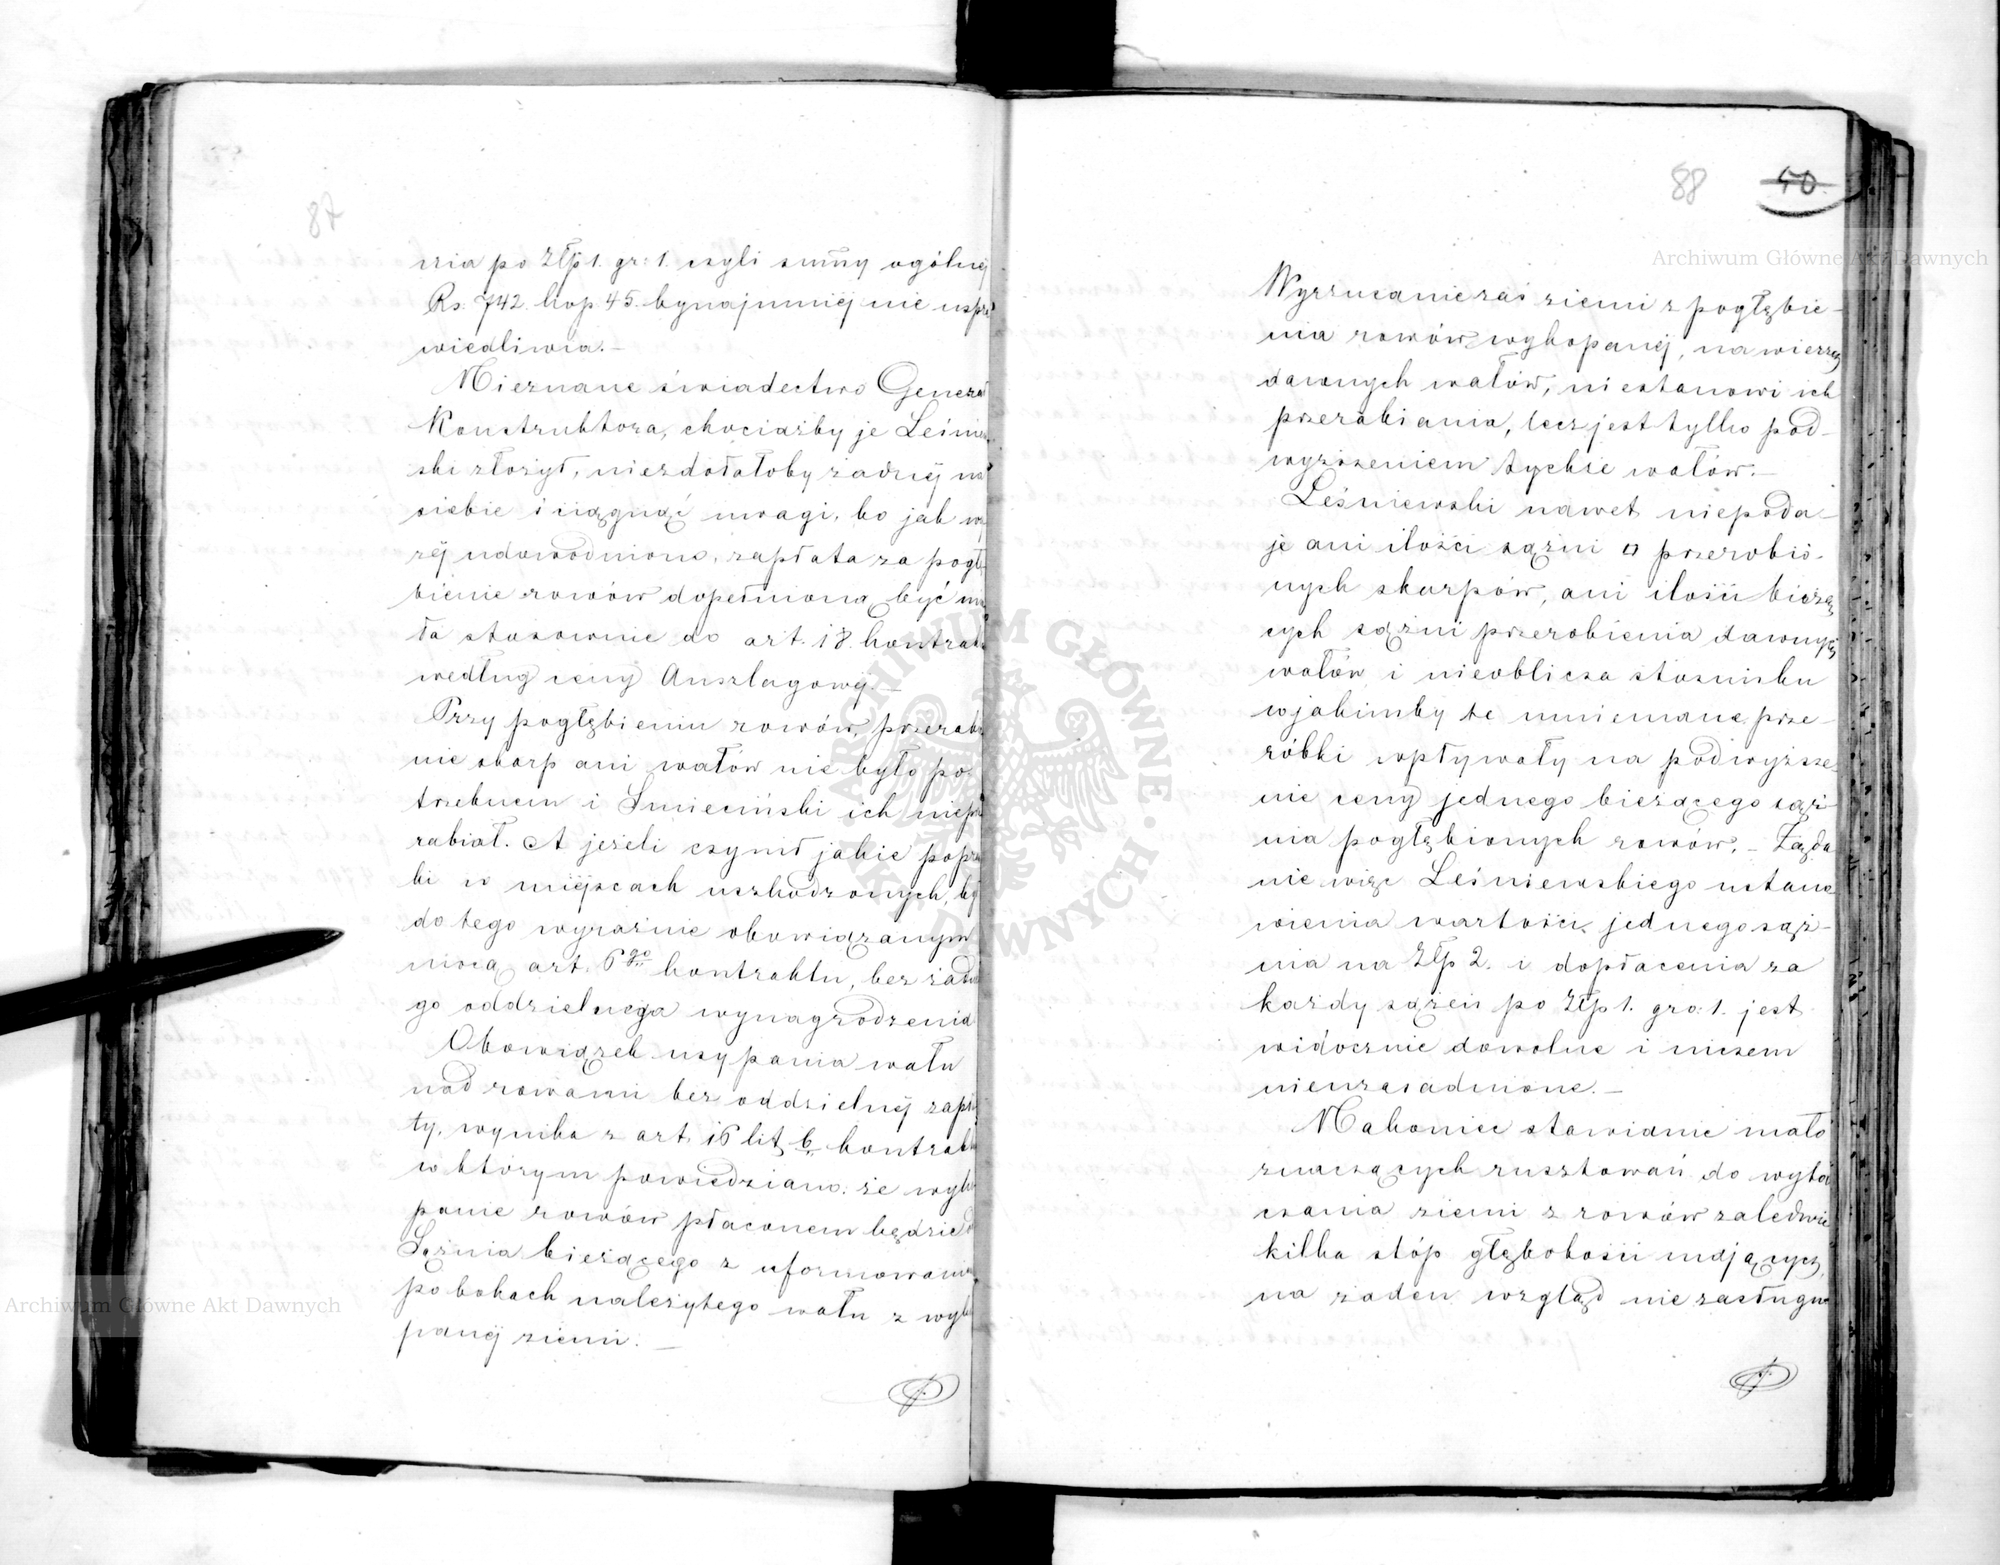 87
nia po Złp 1. gr: 1. czyli summy ogólnej
Rs. 742. kop 45. bynajmniej nie uspra
wiedliwia.—
Nieznane świadectwo Generał
Konstruktora, chociażby je Leśniew
ski złożył, niezdołałoby żadnej na
siebie ściągnąć uwagi, bo jak wy
żej udowodniono, zapłata za pogłę
bienie rowów dopełnioną być mia
ła stosownie do art. 18. kontraktu
według ceny Anszlagowej.—
Przy pogłębieniu rowów, przerabia
nie skarp ani wałów nie było po-
trzebnem i Śmieciński ich nieprze
rabiał. A jeżeli czynił jakie popraw
ki w miejscach uszkodzonych, był
do tego wyraźnie obowiązanym
mocą art. 6go kontraktu, bez żadne
go oddzielnego wynagrodzenia
Obowiązek usypania wału
nad rowami bez oddzielnej zapła
ty, wynika z art. 16 lit. b. kontraktu
w którym powiedziano: że wyko
panie rowów płaconem będzie od
Sążnia bieżącego z uformowaniem
po bokach należytego wału z wyko
panej ziemi.—
88 50
Wyrzucanie zaś ziemi z pogłębie-
nia rowów wykopanej, na wierzch
dawnych wałów, niestanowi ich
przerabiania, lecz jest tylko pod-
wyższeniem tychże wałów.—
Leśniewski nawet niepoda-
je ani ilości sążni □ przerobio-
nych skarpów, ani ilości bieżą
cych sążni przerobienia dawnych
wałów i nieoblicza stosunku
w jakimby te mniemane prze-
róbki wpływały na podwyższe-
nie ceny jednego bieżącego sąż-
nia pogłębionych rowów.— Żąda
nie więc Leśniewskiego ustano
wienia wartości jednego sąż-
nia na Złp 2. i dopłacenia za
każdy sążeń po Złp 1. gro: 1. jest
widocznie dowolne i niczem
nieuzasadnione.—
Nakoniec stawianie mało
znaczących rusztowań do wyta
czania ziemi z rowów zaledwie
kilka stóp głębokości mających,
na żaden wzgląd nie zasługuje
Archiwum Główne Akt Dawnych
Archiwum Główne Akt Dawnych
ARCHIWUM GŁÓWNE AKT DAWNYCH